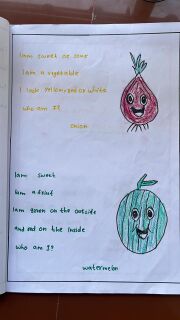 I am sweet or sour
I am a vegetable
I look yellow, red or white
who am I?
onion
I am sweet
I am a fruit
I am green on the outside
and red on the inside
who am I?
watermelon